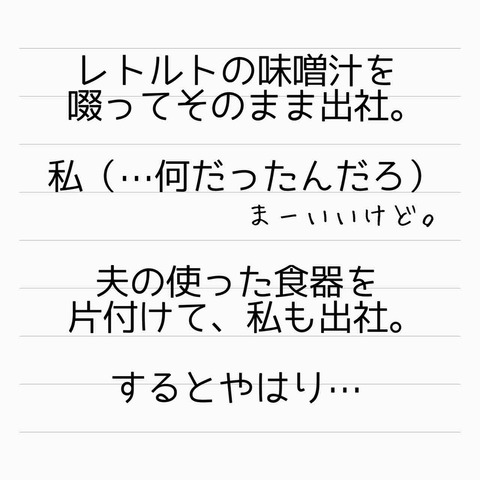 レトルトの味噌汁を
啜ってそのまま出社。
私（…何だったんだろ）
まーいいけど。
夫の使った食器を
片付けて、私も出社。
するとやはり…